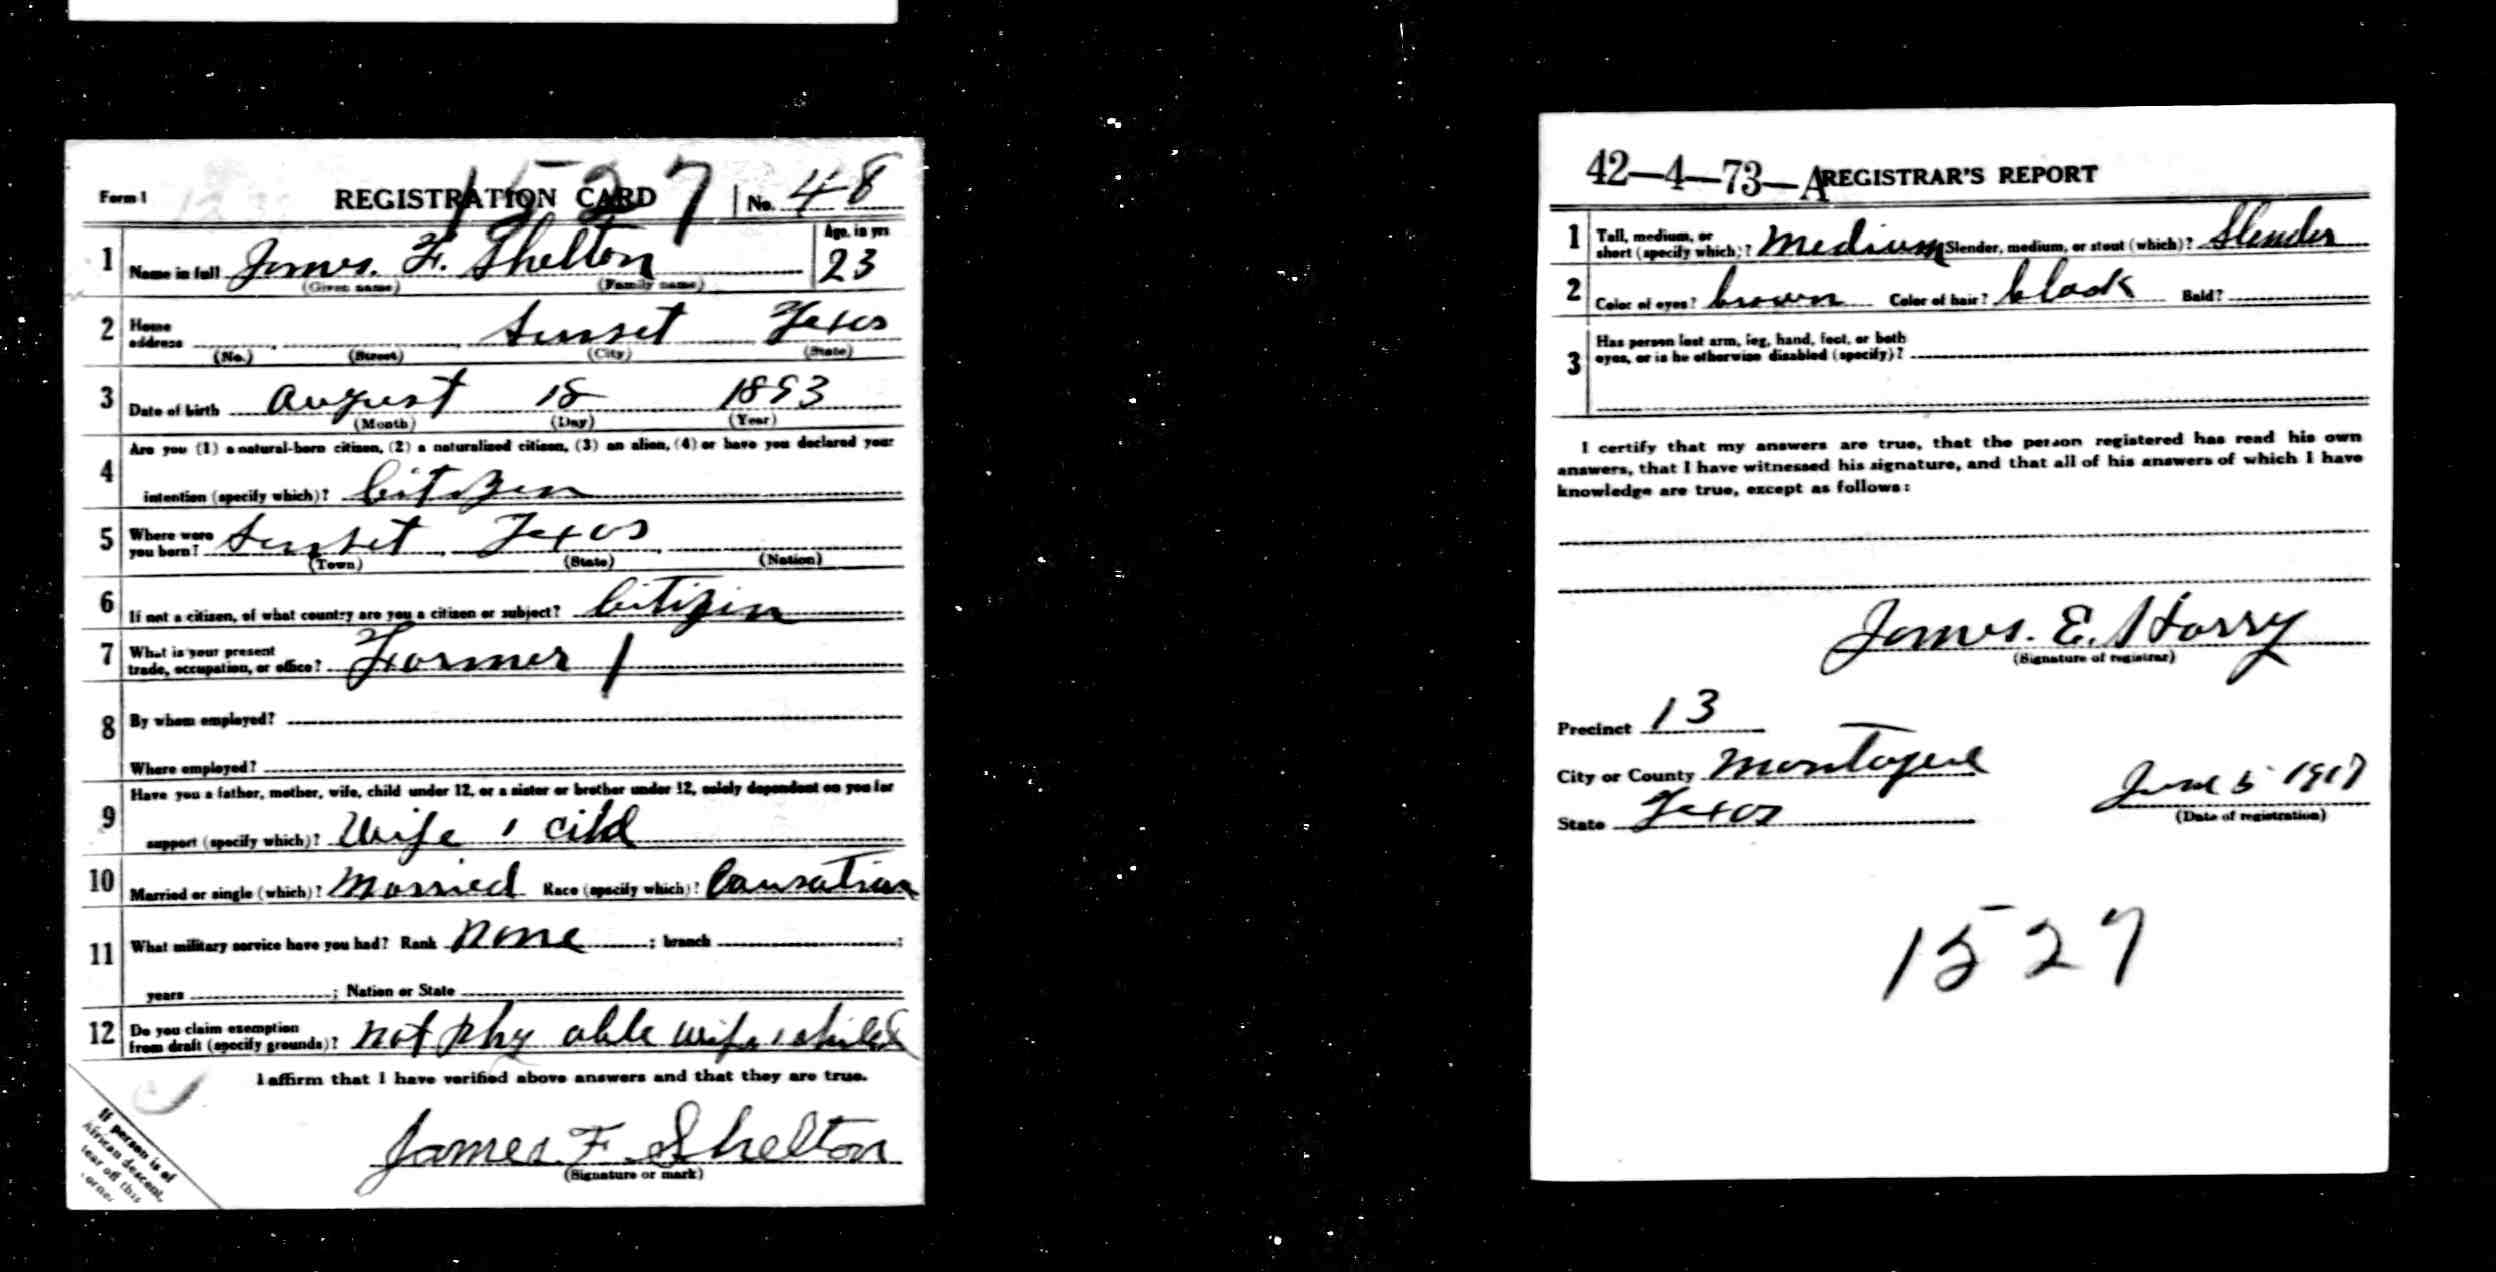 1527
Form 1 REGISTRATION CARD No. 48
1 Name in full James. F. Shelton Age, in yrs 23
(Given name) (Family name)
2 Home address Sunset Texas
(No.) (Street) (City) (State)
3 Date of birth August 18 1893
(Month) (Day) (Year)
4 Are you (1) a natural-born citizen, (2) a naturalized citizen, (3) an alien, (4) or have you declared your
intention (specify which)? Citizen
5 Where were you born? Sunset Texas
(Town) (State) (Nation)
6 If not a citizen, of what country are you a citizen or subject? Citizin
7 What is your present
trade, occupation, or office? Farmer 1
8 By whom employed?
Where employed?
9 Have you a father, mother, wife, child under 12, or a sister or brother under 12, solely dependent on you for
support (specify which)? Wife 1 cild
10 Married or single (which)? Married Race (specify which)? Causation
11 What military service have you had? Rank none ; branch ;
years ; Nation or State
12 Do you claim exemption
from draft (specify grounds)? not phy able wife 1 child
I affirm that I have verified above answers and that they are true.
James F Shelton
(Signature or mark)
If person is of
African descent,
tear off this
corner
42-4-73-A REGISTRAR'S REPORT
1 Tall, medium, or
short (specify which)? Medium Slender, medium, or stout (which)? Slender
2 Color of eyes? brown Color of hair? black Bald?
3 Has person lost arm, leg, hand, foot, or both
eyes, or is he otherwise disabled (specify)?
I certify that my answers are true, that the person registered has read his own
answers, that I have witnessed his signature, and that all of his answers of which I have
knowledge are true, except as follows:
James. E.
(Signature of registrar)
Precinct 13
City or County Montague
State Texas
June 5 1917
(Date of registration)
1527